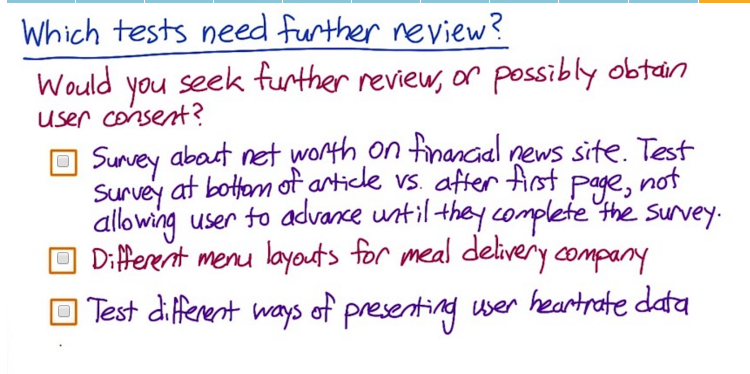 Which tests need further review?
Would you seek further review, or possibly obtain
user consent?
Survey about net worth on financial news site. Test
survey at bottom of article vs. after first page, not
allowing user to advance until they complete the survey.
Different menu layouts for meal delivery company
Test different ways of presenting user heartrate data